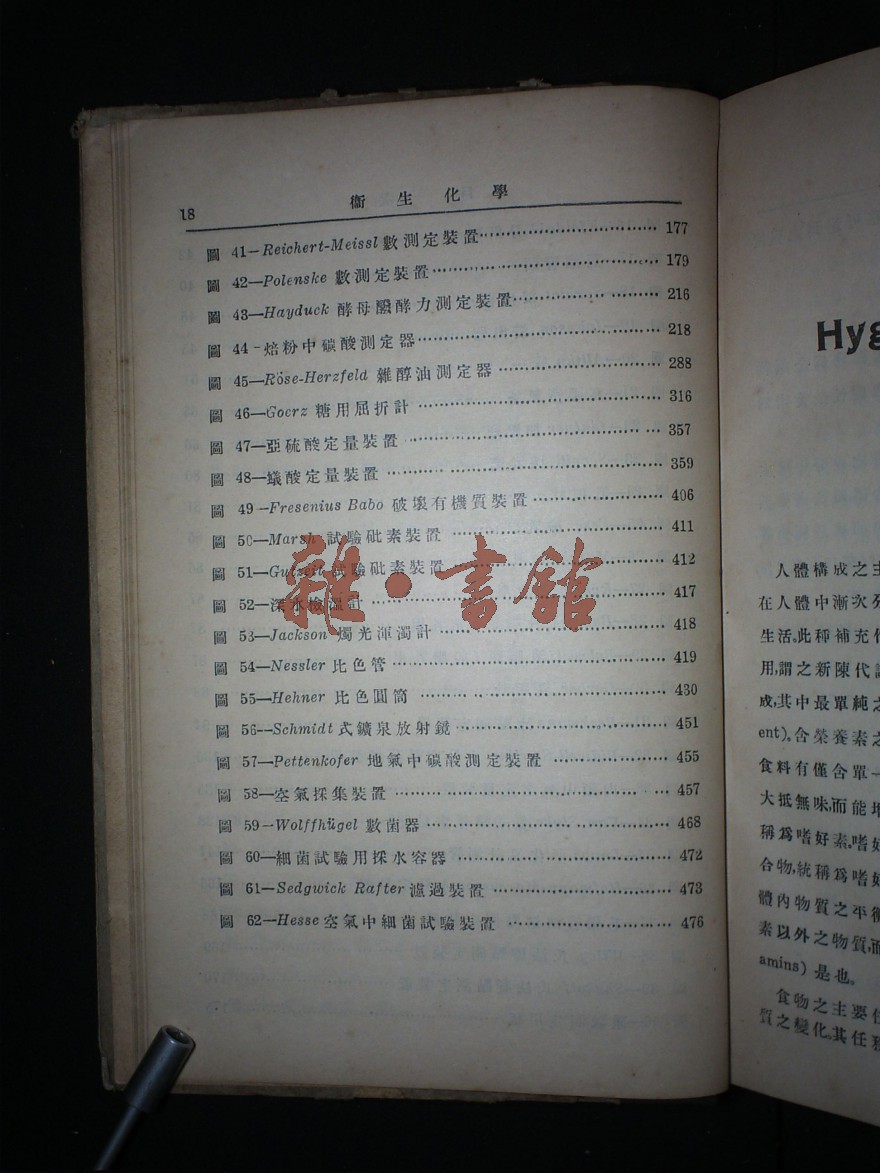 18
衞生化學
圖 41—Reichert-Meissl 數測定裝置 177
圖 42—Polenske 數測定裝置 179
圖 43—Hayduck 酵母醱酵力測定裝置 216
圖 44-焙粉中碳酸測定器 218
圖 45—Röse-Herzfeld 雜醇油測定器 288
圖 46—Goerz 糖用屈折計 316
圖 47—亞硫酸定量裝置 357
圖 48—蟻酸定量裝置 359
圖 49-Fresenius Babo 破壞有機質裝置 406
圖 50—Marsh 試驗砒素裝置 411
圖 51—Gutzeit 試驗砒素裝置 412
圖 52—深水檢溫計 417
圖 53—Jackson 燭光渾濁計 418
圖 54—Nessler 比色管 419
圖 55—Hehner 比色圓筒 430
圖 56—Schmidt 式鑛泉放射鏡 451
圖 57—Pettenkofer 地氣中碳酸測定裝置 455
圖 58—空氣採集裝置 457
圖 59—Wolffhügel 數菌器 468
圖 60—細菌試驗用採水容器 472
圖 61—Sedgwick Rafter 濾過裝置 473
圖 62—Hesse 空氣中細菌試驗裝置 476
雜·書館
Hyg
人體構成之主
在人體中漸次分
生活。此種補充作
用,謂之新陳代謝
成,其中最單純之
ent)。含榮養素之
食料有僅含單一
大抵無味,而能增
稱爲嗜好素。嗜好
合物,統稱爲嗜好
體內物質之平衡
素以外之物質,而
amins) 是也。
食物之主要任
質之變化,其任務